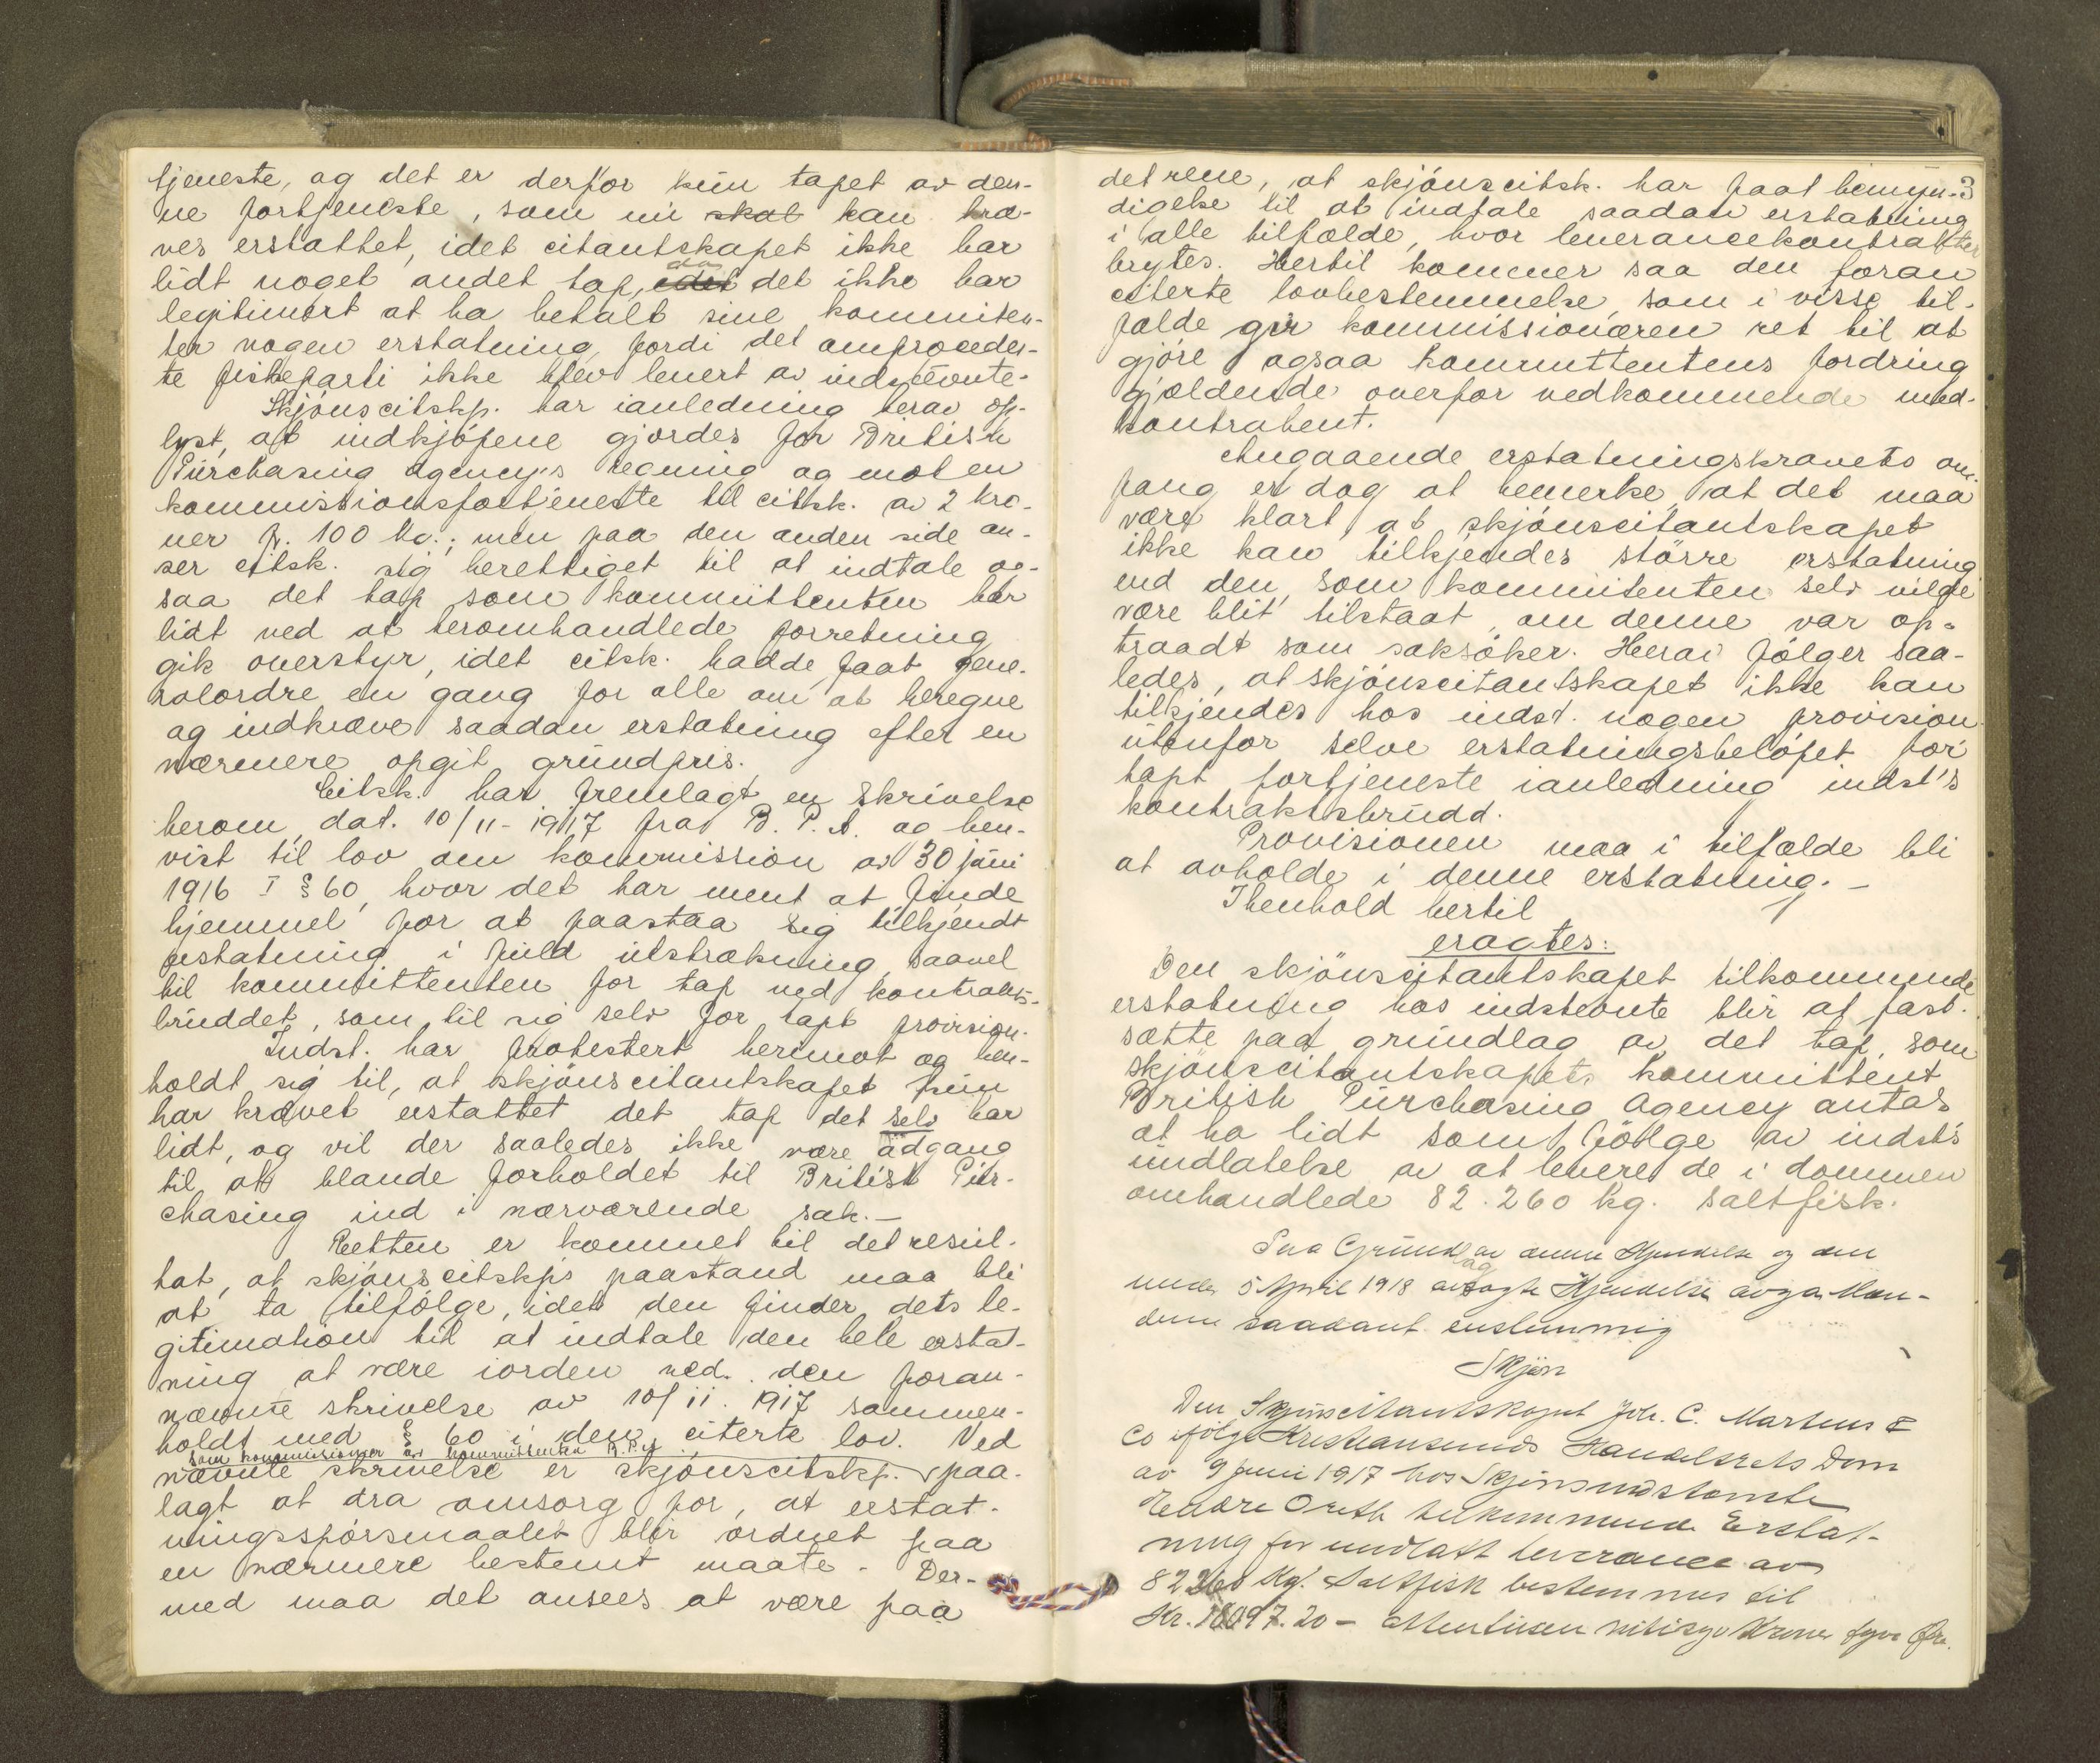 tjeneste, og det er derfor kun tapet av den-
ne fortjeneste, som nu skal kan kræ-
ves erstattet, idet citantskapet ikke har
lidt noget andet tap, da idet det ikke har
legitimert at ha betalt sine kommiten-
ter nogen erstatning, fordi det omproceder-
te fiskeparti ikke blev levert av indstevnte.
Skjönscitskp. har ianledning herav op-
lyst, at indkjöpene gjordes for British
Purchasing Agency's regning og mot en
kommissionsfortjeneste til citsk. av 2 kro-
ner pr. 100 kg.; men paa den anden side an-
ser citsk. sig berettiget til at indtale og-
saa det tap som kommittenten har
lidt ved at heromhandlede forretning
gik overstyr, idet citsk. hadde faat gene-
ralordre en gang for alle om at beregne
og indkræve saadan erstatning efter en
nærmere opgit grundpris.
Citsk. har fremlagt en skrivelse
herom, dat. 10/11-1917 fra B. P. A. og hen-
vist til lov om kommission av 30 juni
1916 I § 60, hvor det har ment at finde
hjemmel for at paastaa sig tilkjendt
erstatning i fuld utstrækning, saavel
til kommittenten for tap ved kontrakts-
bruddet, som til sig selv for tapt provision.
Indst. har protestert herimot og hen-
holdt sig til, at skjönscitantskapet kun
har krævet erstattet det tap det selv har
lidt, og vil der saaledes ikke være adgang
til at blande forholdet til British Pur-
chasing ind i nærværende sak.-
Retten er kommet til det resul-
tat, at skjönscitskp's paastand maa bli
at ta tilfölge, idet den finder dets le-
gitimation til at indtale den hele erstat-
ning at være iorden ved den foran-
nævnte skrivelse av 10/11. 1917 sammen-
holdt med § 60 i den citerte lov. Ved
som kommisionær av kommittenten B.P.A
nævnte skrivelse er skjönscitskp. paa-
lagt at dra omsorg for, at erstat-
ningsspörsmaalet blir ordnet paa
en nærmere bestemt maate. Der-
med maa det ansees at være paa
3
det rene, at skjönscitsk. har faat bemyn-
digelse til at indtale saadan erstatning
i alle tilfælde, hvor leverancekontrakter
brytes. Hertil kommer saa den foran
citerte lovbestemmelse, som i visse til-
fælde gir kommissionæren ret til at
gjöre ogsaa kommittentens fordring
gjældende overfor vedkommende med-
kontrahent.
Angaaende erstatningskravets om-
fang er dog at bemerke, at det maa
være klart at skjönscitantskapet
ikke kan tilkjendes större erstatning
end den, som kommitenten selv vilde
være blit tilstaat, om denne var op-
traadt som saksöker. Herav fölger saa-
ledes, at skjönscitantskapet ikke kan
tilkjendes hos indst. nogen provision
utenfor selve erstatningsbelöpet for
tapt fortjeneste ianledning indst's
kontraktsbrudd.
Provisionen maa i tilfælde bli
at avholde i denne erstatning.-
I henhold hertil
eragtes:
Den skjönscitantskapet tilkommende
erstatning hos indstevnte blir at fast-
sætte paa grundlag av det tap, som
skjönscitantskapets kommittent
British Purchasing Agency antas
at ha lidt som fölge av indst's
undlatelse av at levere de i dommen
omhandlede 82.260 kg. saltfisk.
Paa Grundlag av denne Kjendelse og den
under 5 April 1918 avsagte Kjendelse avga Mæn-
dene saadant enstemmig
Skjön
Den Skjönscitantskapet Joh. C. Martens &
Co ifölge Kristiansunds Handelsrets Dom
av 9 Juni 1917 hos Skjönsindstevnte
Hendre Oreth tilkommende Erstat-
ning for undlatt leverance av
82260 Kg. Saltfisk bestemmes til
Kr. 18097.20 - attentusen nitisyv Kroner tyve Öre.